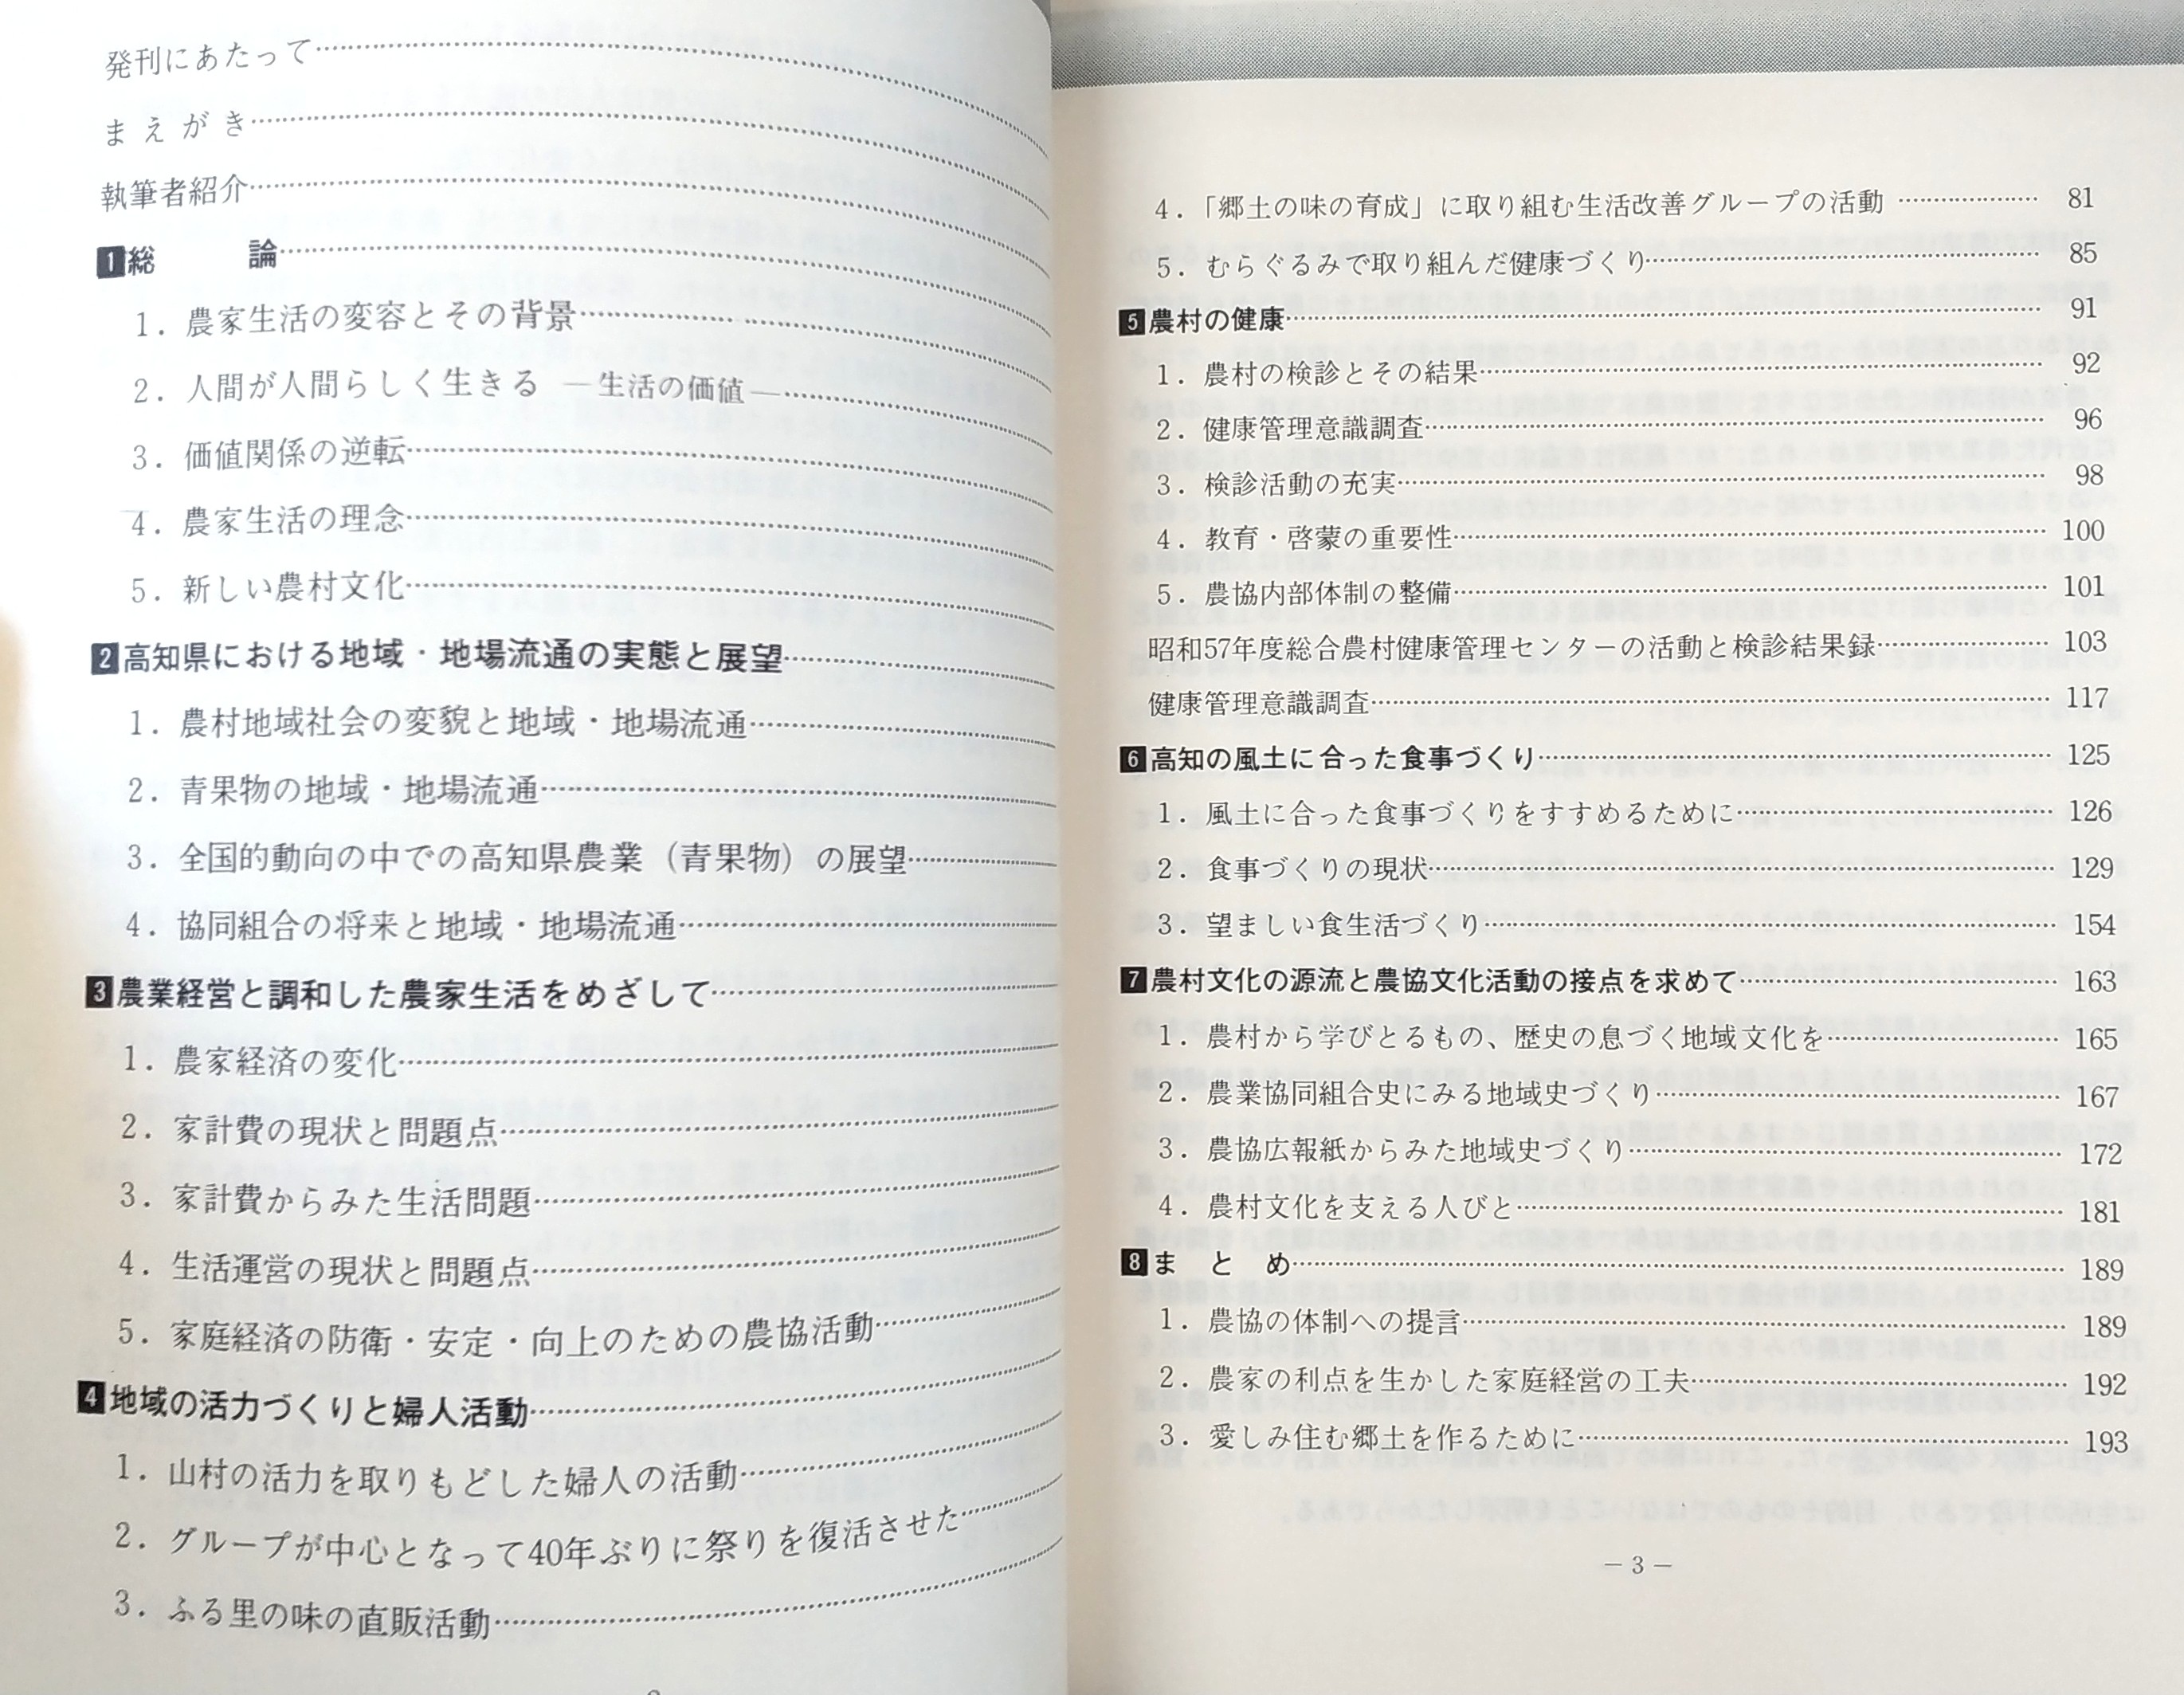 発刊にあたって
まえがき
執筆者紹介
1 総　　論
1．農家生活の変容とその背景
2．人間が人間らしく生きる ―生活の価値―
3．価値関係の逆転
4．農家生活の理念
5．新しい農村文化
2 高知県における地域・地場流通の実態と展望
1．農村地域社会の変貌と地域・地場流通
2．青果物の地域・地場流通
3．全国的動向の中での高知県農業（青果物）の展望
4．協同組合の将来と地域・地場流通
3 農業経営と調和した農家生活をめざして
1．農家経済の変化
2．家計費の現状と問題点
3．家計費からみた生活問題
4．生活運営の現状と問題点
5．家庭経済の防衛・安定・向上のための農協活動
4 地域の活力づくりと婦人活動
1．山村の活力を取りもどした婦人の活動
2．グループが中心となって40年ぶりに祭りを復活させた
3．ふる里の味の直販活動
4．「郷土の味の育成」に取り組む生活改善グループの活動 81
5．むらぐるみで取り組んだ健康づくり 85
5 農村の健康 91
1．農村の検診とその結果 92
2．健康管理意識調査 96
3．検診活動の充実 98
4．教育・啓蒙の重要性 100
5．農協内部体制の整備 101
昭和57年度総合農村健康管理センターの活動と検診結果録 103
健康管理意識調査 117
6 高知の風土に合った食事づくり 125
1．風土に合った食事づくりをすすめるために 126
2．食事づくりの現状 129
3．望ましい食生活づくり 154
7 農村文化の源流と農協文化活動の接点を求めて 163
1．農村から学びとるもの、歴史の息づく地域文化を 165
2．農業協同組合史にみる地域史づくり 167
3．農協広報紙からみた地域史づくり 172
4．農村文化を支える人びと 181
8 まとめ 189
1．農協の体制への提言 189
2．農家の利点を生かした家庭経営の工夫 192
3．愛しみ住む郷土を作るために 193
― 3 ―